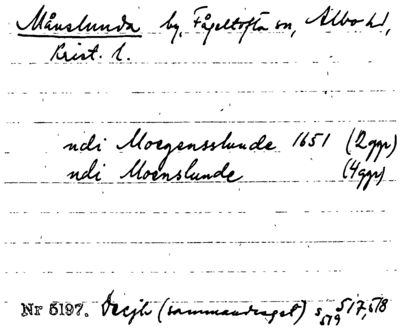 Månslunda by, Fågeltofta sn, Albo hd,
Krist. l.
ndi Moegensslunde 1651 (2ggr)
ndi Moenslunde (4ggr)
Nr 5197. Decjb (sammandraget) s 517, 518
519